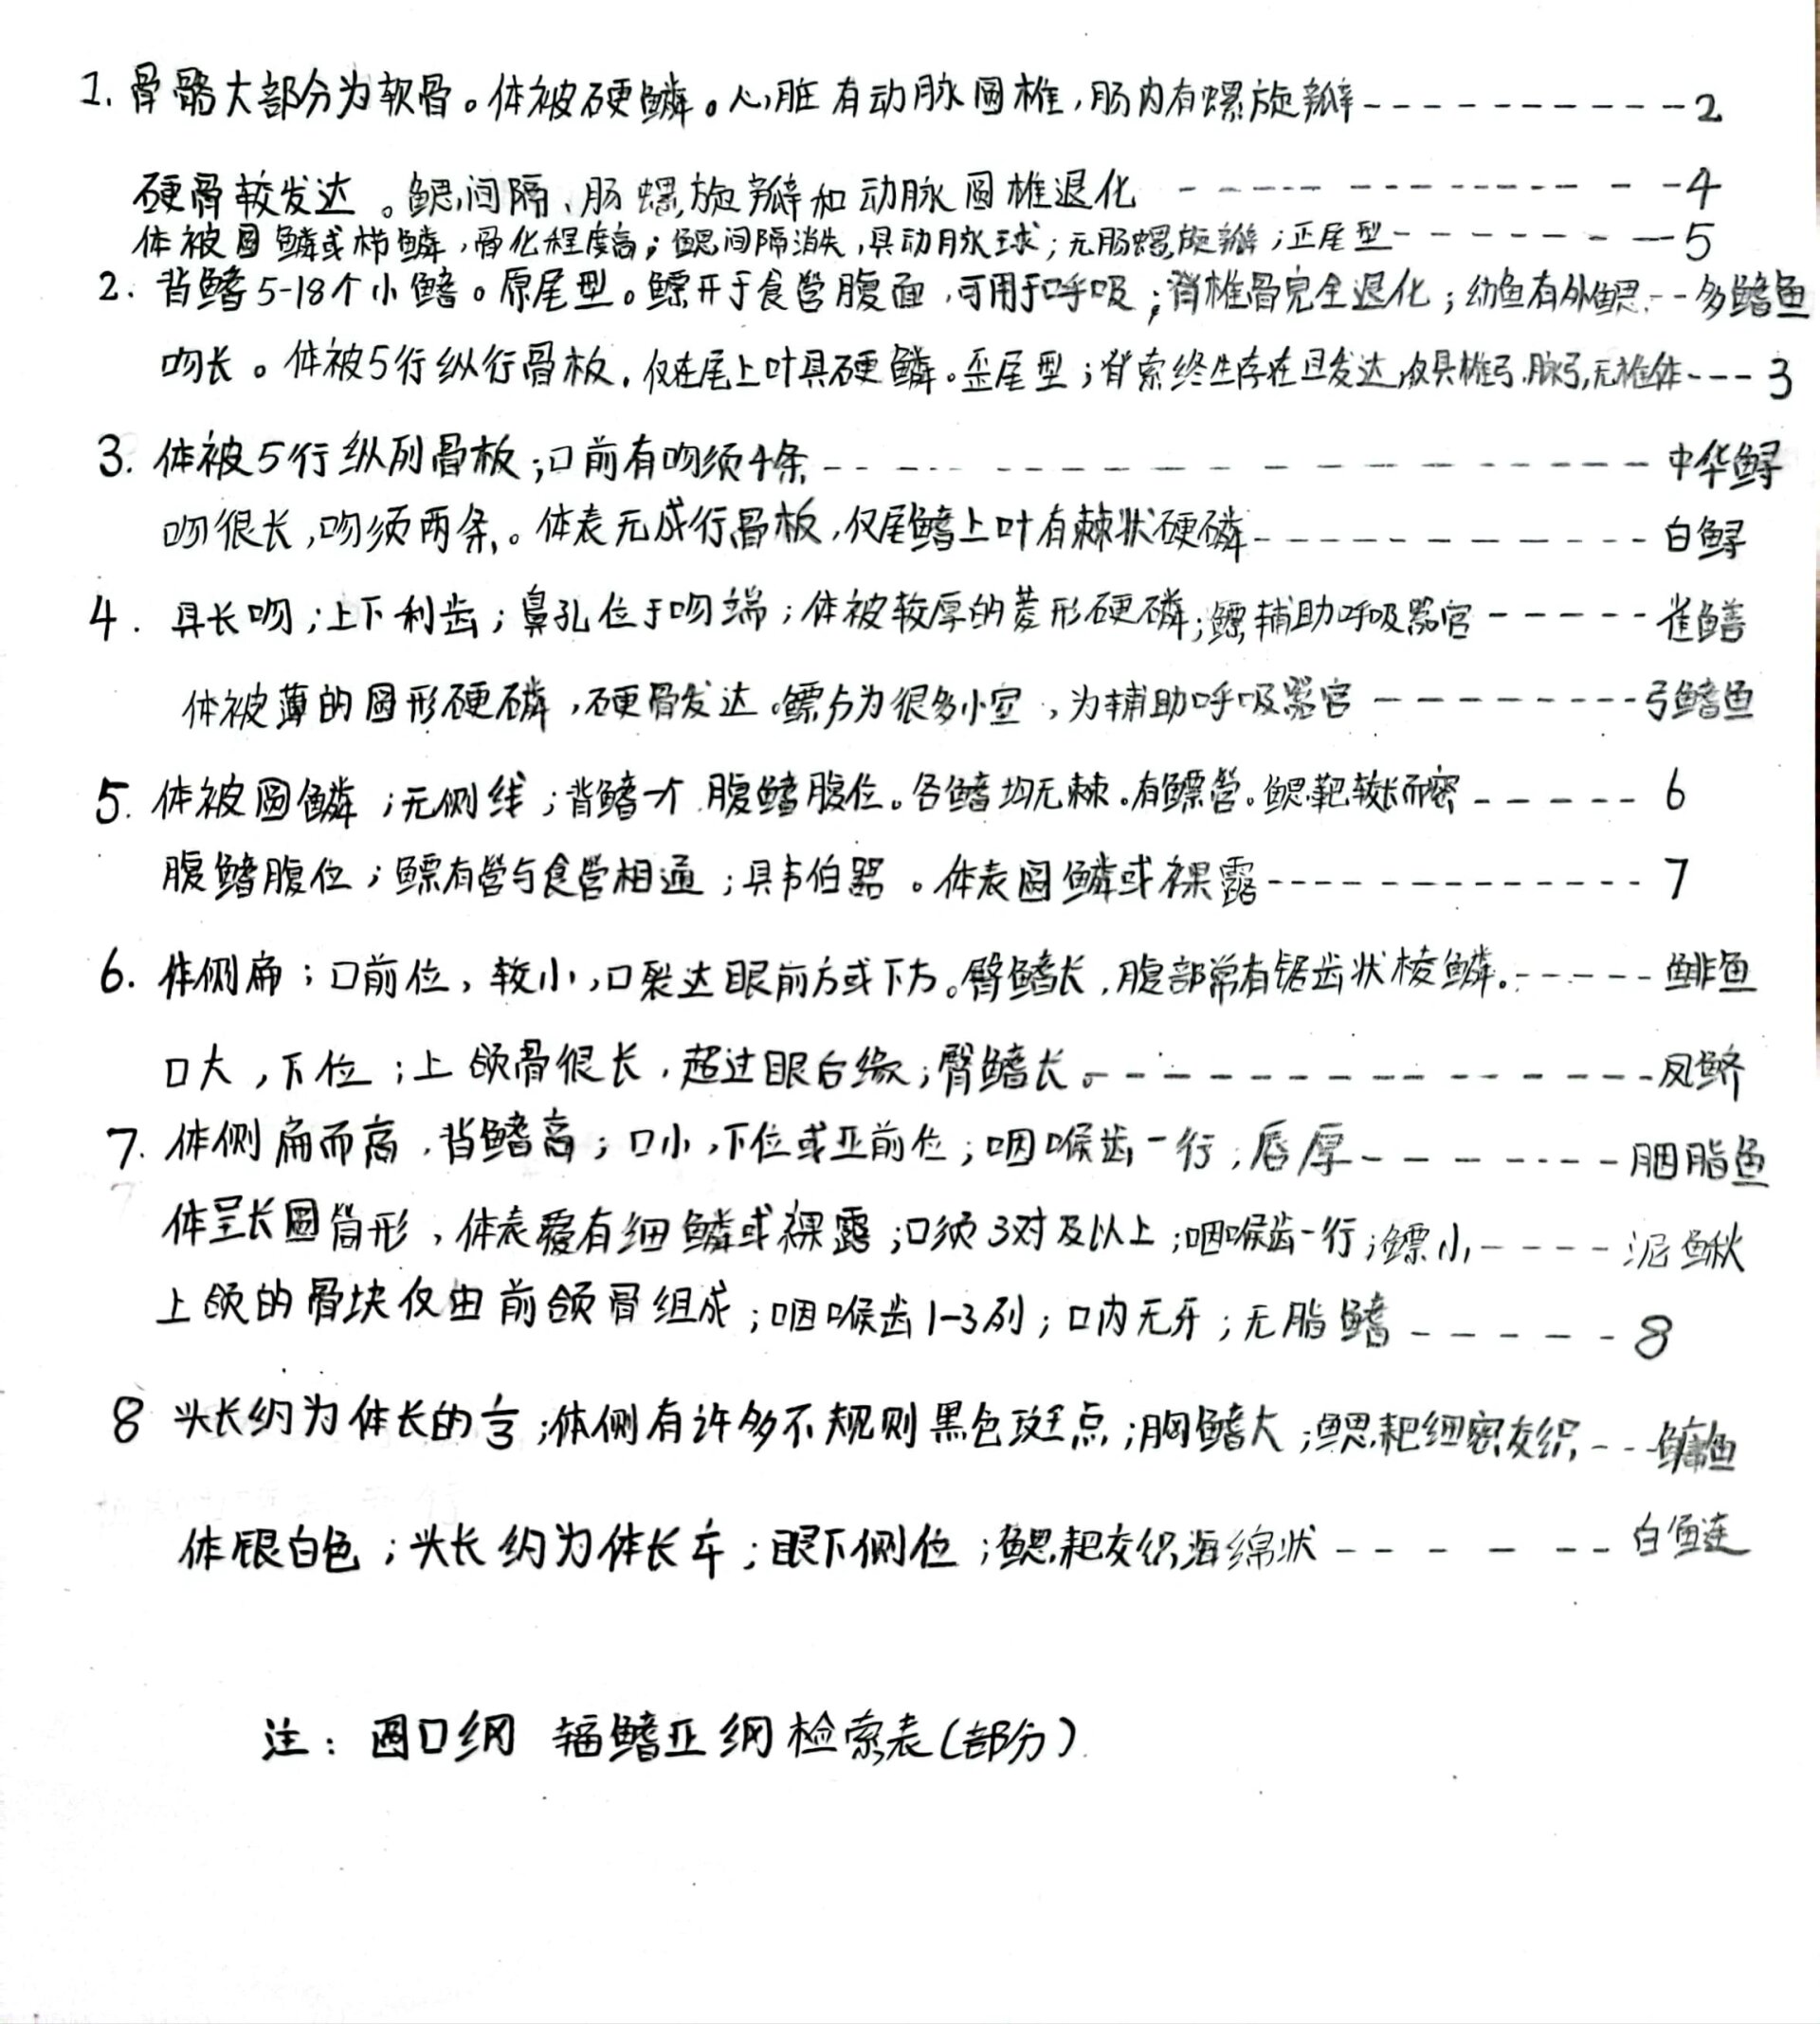 1. 骨骼大部分为软骨。体被硬鳞。心脏有动脉圆椎，肠内有螺旋瓣----------2
硬骨较发达。鳃间隔、肠螺旋瓣和动脉圆椎退化 ------------4
体被圆鳞或栉鳞，骨化程度高；鳃间隔消失，具动脉球；无肠螺旋瓣；正尾型--------5
2. 背鳍5-18个小鳍。原尾型。鳔开于食管腹面，可用于呼吸；脊椎骨完全退化；幼鱼有外鳃--多鳍鱼
吻长。体被5行纵行骨板，仅在尾上叶具硬鳞。歪尾型；脊索终生存在且发达，仅具椎弓、脉弓，无椎体---3
3. 体被5行纵列骨板；口前有吻须4条------------------中华鲟
吻很长，吻须两条。体表无成行骨板，仅尾鳍上叶有棘状硬磷------------白鲟
4. 具长吻；上下利齿；鼻孔位于吻端；体被较厚的菱形硬磷；鳔辅助呼吸器官-----雀鳝
体被薄的圆形硬磷，硬骨发达。鳔分为很多小室，为辅助呼吸器官--------弓鳍鱼
5. 体被圆鳞；无侧线；背鳍一个，腹鳍腹位。各鳍均无棘。有鳔管。鳃耙较长而密-----6
腹鳍腹位；鳔有管与食管相通；具韦伯器。体表圆鳞或裸露-------------7
6. 体侧扁；口前位，较小，口裂达眼前方或下方。臀鳍长，腹部常有锯齿状棱鳞。-----鲱鱼
口大，下位；上颌骨很长，超过眼后缘；臀鳍长。--------------凤鲚
7. 体侧扁而高，背鳍高；口小，下位或亚前位；咽喉齿一行，唇厚--------胭脂鱼
体呈长圆筒形，体表覆有细鳞或裸露；口须3对及以上；咽喉齿一行；鳔小----泥鳅
上颌的骨块仅由前颌骨组成；咽喉齿1-3列；口内无牙；无脂鳍-----8
8 头长约为体长的1/3；体侧有许多不规则黑色斑点；胸鳍大；鳃耙细密交织---鳙鱼
体银白色；头长约为体长；眼下侧位；鳃耙交织海绵状------白鲢
注：圆口纲 辐鳍亚纲检索表（部分）